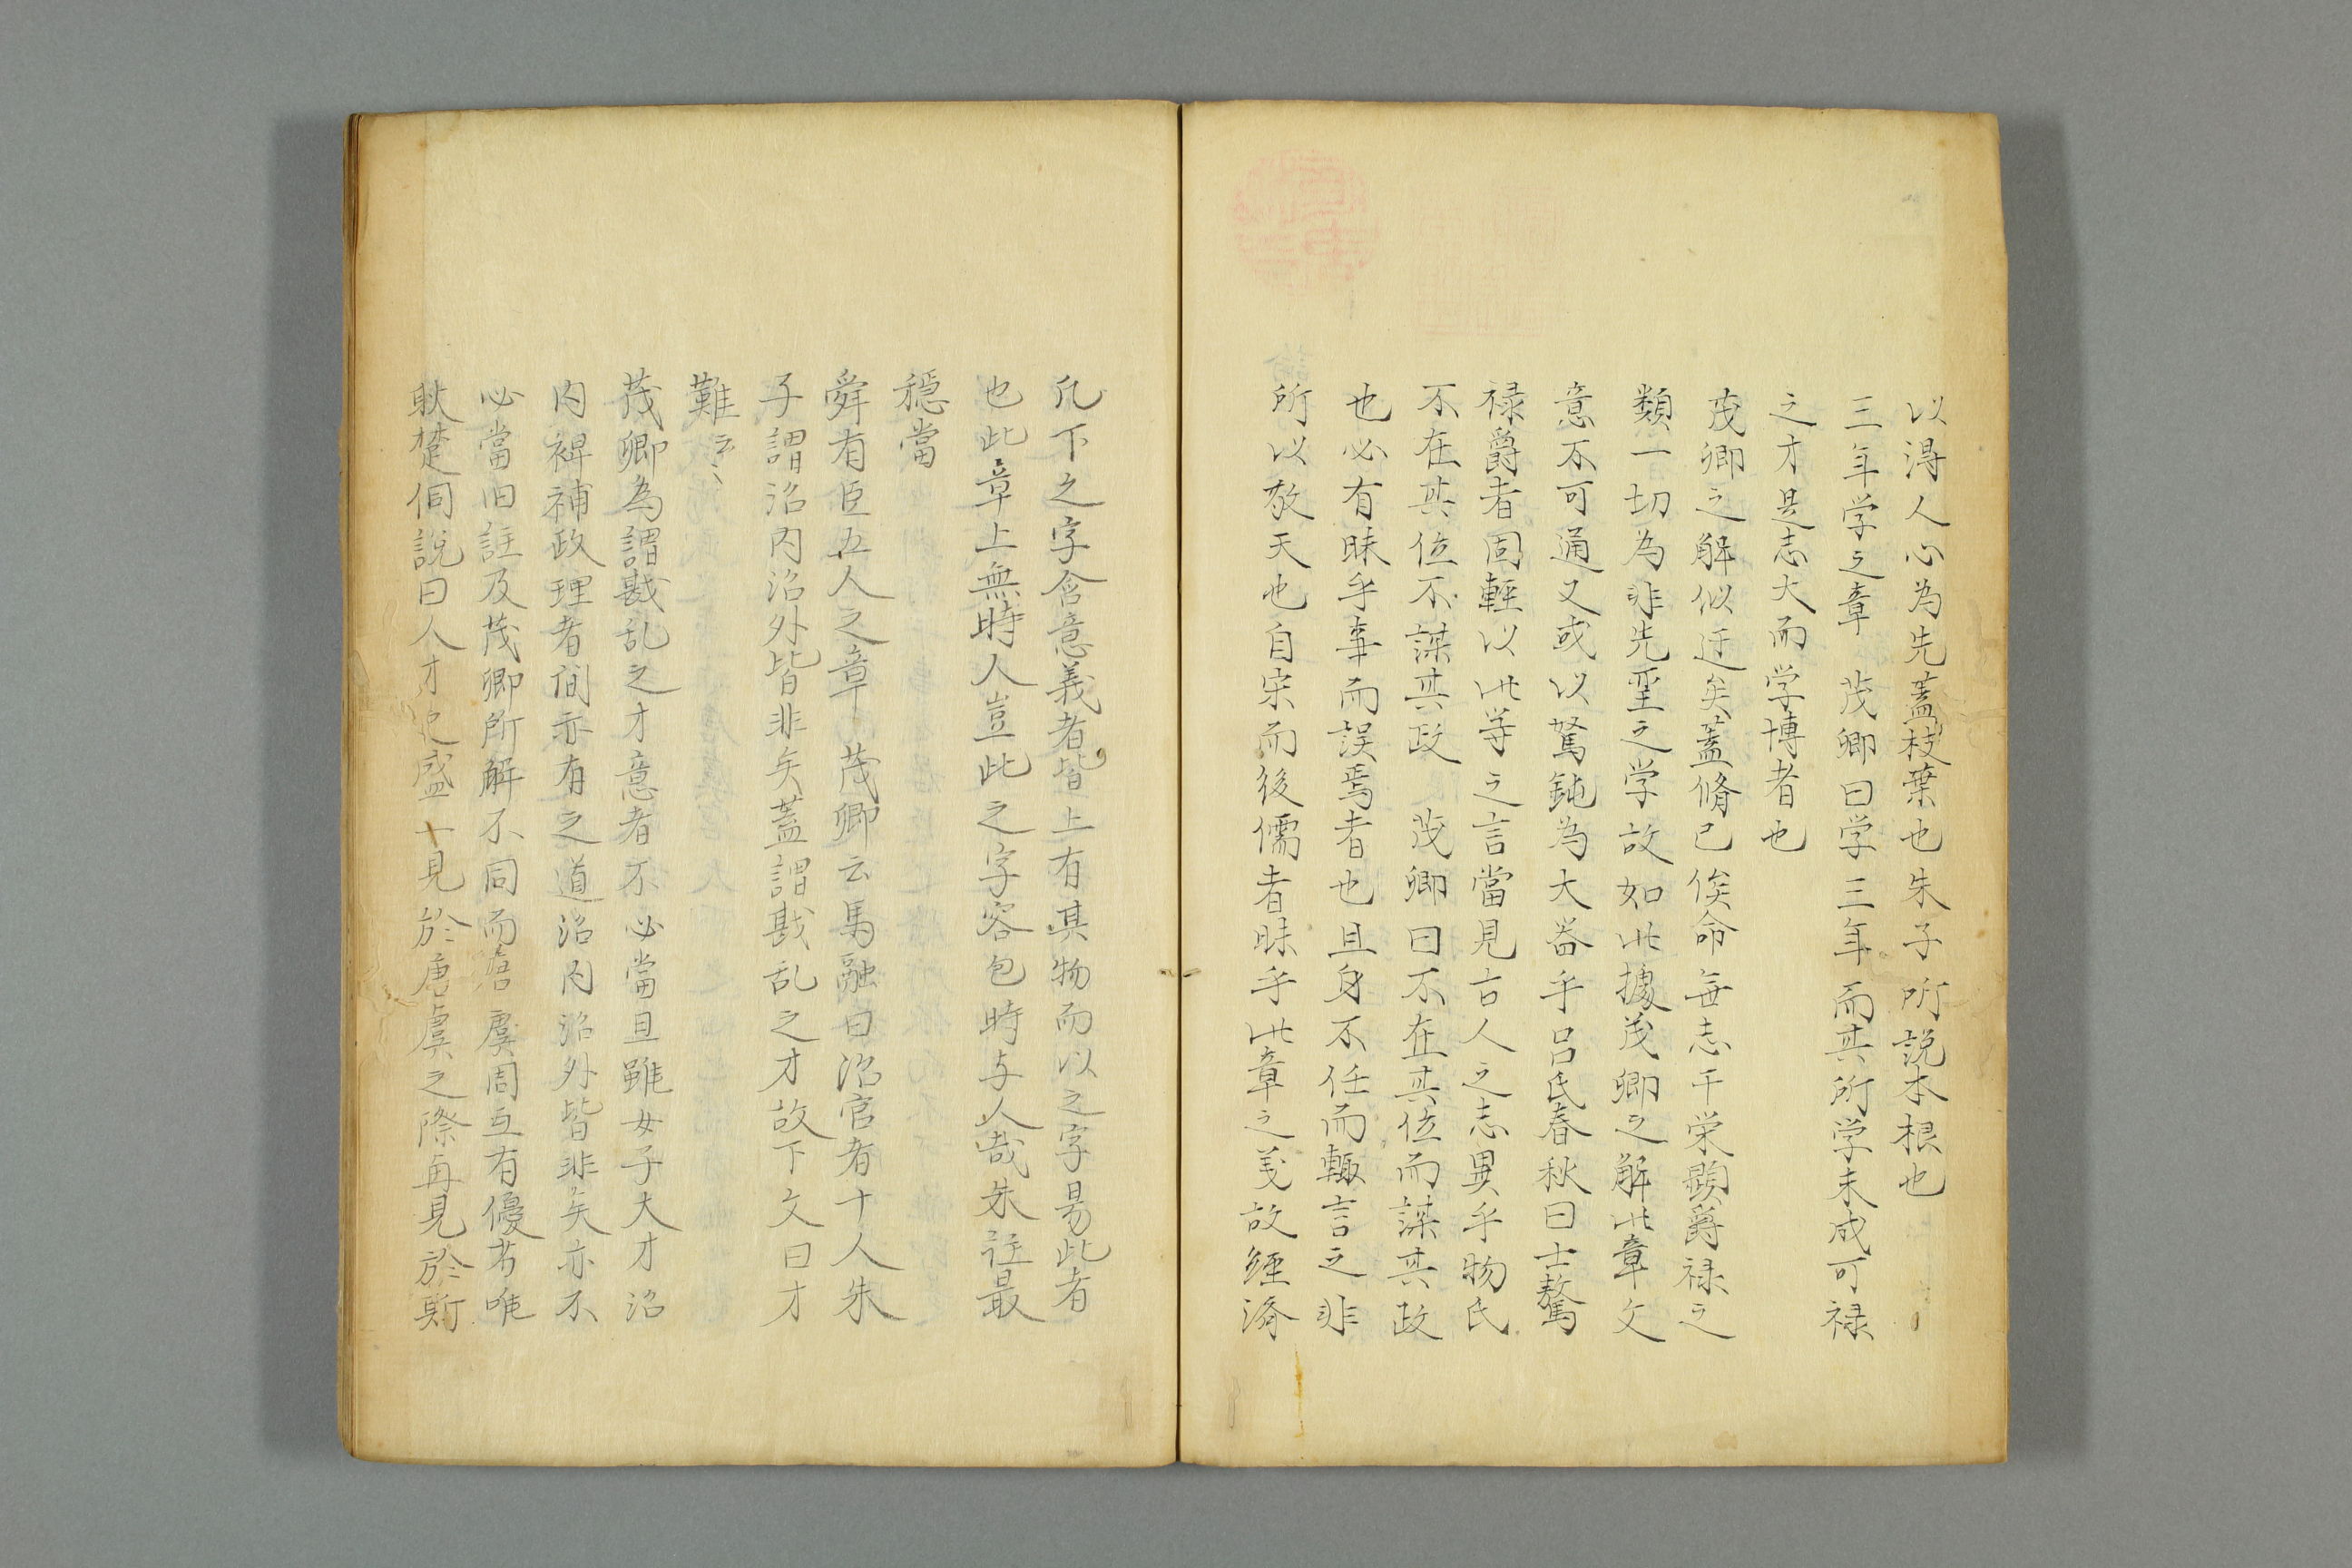 以得人心为先蓋枝葉也朱子所說本根也
三年学之章　茂卿曰学三年而其所学未成可禄
之才是志大而学博者也
茂卿之解似迂矣蓋脩己俟命無志干栄顕爵禄之
類一切为非先聖之学故如此據茂卿之解此章文
意不可通又或以駑鈍为大器乎呂氏春秋曰士驁
禄爵者固輕以此等之言當見古人之志異乎物氏
不在其位不謀其政　茂卿曰不在其位而謀其政
也必有昧乎事而誤焉者也且身不任而輙言之非
所以敬天也自宋而後儒者昧乎此章之義故經済
凡下之字含意義者皆上有其物而以之字易此者
也此章上無時人豈此之字容包時与人哉朱註最
穏當
舜有臣五人之章　茂卿云馬融曰治官者十人朱
子謂治内治外皆非矣蓋謂戡乱之才故下文曰才
難云々
茂卿為謂戡乱之才意者不必當且雖女子大才治
内裨補政理者間亦有之道治内治外皆非矣亦不
必當旧註及茂卿所解不同而唐虞周互有優劣唯
耿楚侗說曰人才之盛一見於唐虞之際再見於斯